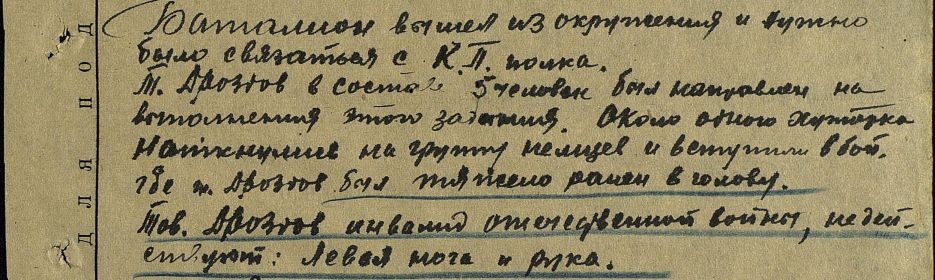 Баталион вышел из окружения и нужно
было связаться с К.П. полка.
Т. Дроздов в состав 5 человек был направлен на
выполнения этого задания. Около одного хуторка
наткнулись на группу немцев и вступили в бой.
где т. Дроздов был тяжело ранен в голову.
Тов. Дроздов инвалид отечественной войны, не дей-
ствуют: Левая нога и рука.
ДЛЯ ПОД